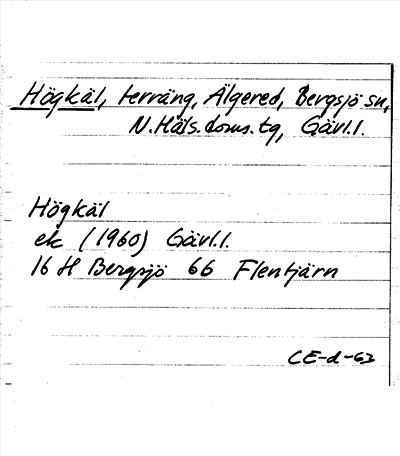 Högkäl, terräng, Älgered, Bergsjö sn,
N. Häls. doms. tg, Gävl.l.
Högkäl
ek (1960) Gävl.l.
16 H Bergsjö 66 Flentjärn
CE-d-63